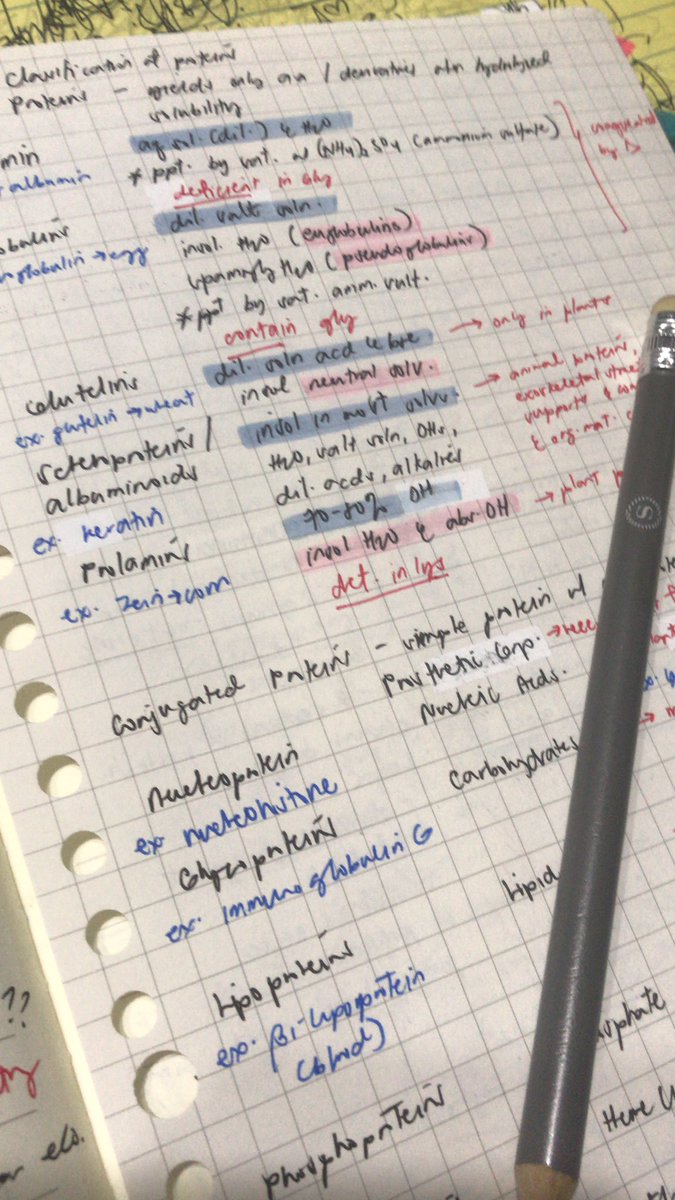 Classification of proteins
Proteins – yields only aa / derivatives when hydrolyzed
solubility
min
albumin
aq sol. (dil.) & H2O
* ppt. by sat. w/ (NH4)2SO4 (ammonium sulfate)
coagulated by Δ
deficient in Gly
obulins
globulin → egg
dil. salt soln.
insol. H2O (euglobulins)
sparingly H2O (pseudoglobulins)
* ppt by sat. amm. sulf.
contain gly
Glutelins
ex. glutelin → wheat
dil. soln acd & bse
→ only in plants
insol neutral solv.
Scleroproteins /
albuminoids
ex. keratin
insol in most solvs.
H2O, salt soln, OHs,
dil. acds, alkalies
→ animal proteins,
exoskeletal
supports &
& org. mat.
Prolamins
ex. Zein → corn
70-80% OH
insol H2O & abs. OH
→ plant
def. in lys
Conjugated proteins – simple protein w/
Prosthetic Grp.
Nucleoprotein
Nucleic Acids.
ex nucleohistone
Glycoproteins
Carbohydrates
ex. Immunoglobulin G
Lipoproteins
Lipid
ex. β1-lipoprotein
(blood)
phosphoproteins
sphate
Heme
??
els.
S